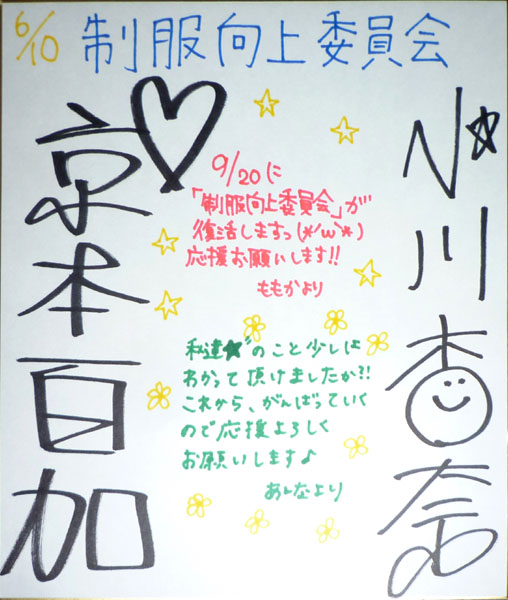 6/10 制服向上委員会
小川杏奈
9/20に
「制服向上委員会」が
復活しますっ(*'ω'*)
応援お願いします!!
ももかより
私達★のこと少しは
わかって頂けましたか?!
これから、がんばっていく
ので応援よろしく
お願いします♪
あんなより
京本百加